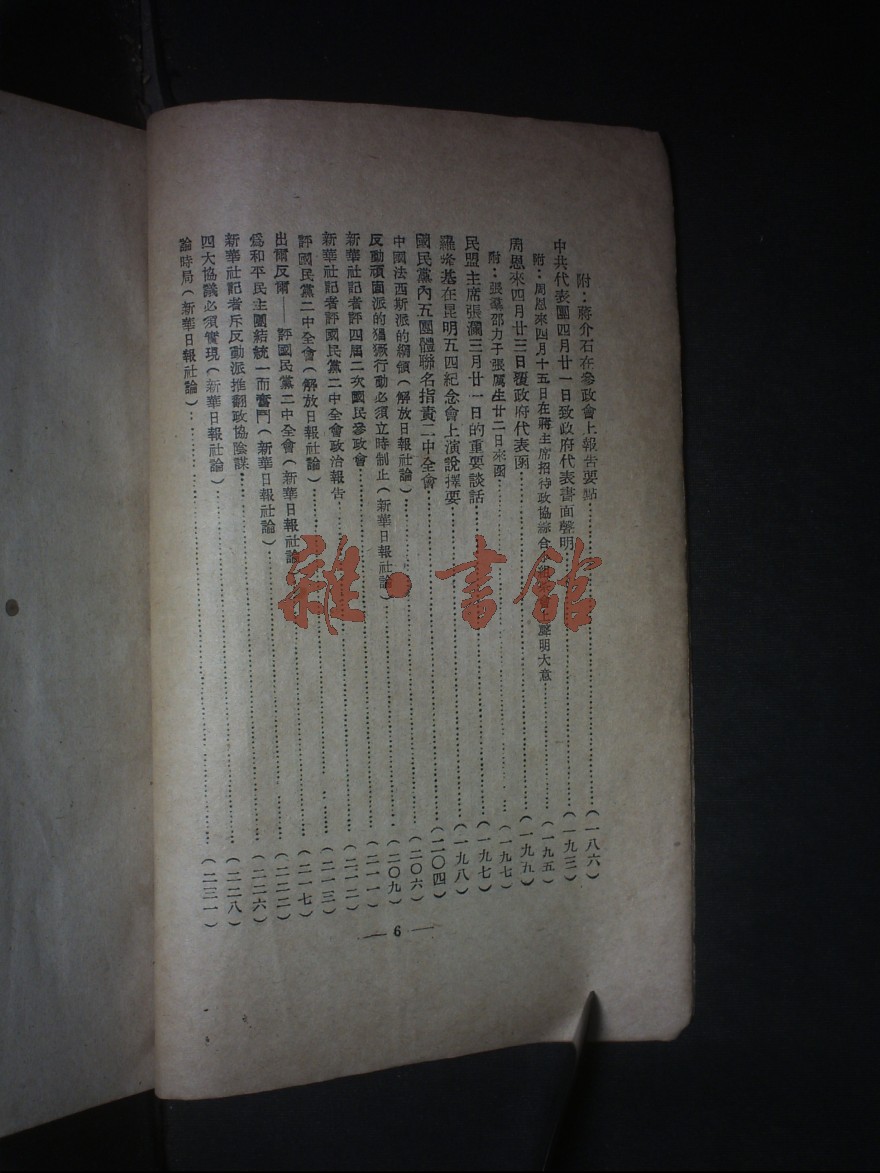 附：蔣介石在參政會上報告要點……（一八六）
中共代表團四月廿一日致政府代表書面聲明……（一九三）
附：周恩來四月十五日在蔣主席招待政協綜合小組聲明大意……（一九五）
周恩來四月廿三日覆政府代表函……（一九九）
附：張羣邵力子張厲生廿二日來函……（一九七）
民盟主席張瀾三月廿一日的重要談話……（一九七）
羅隆基在昆明五四紀念會上演說擇要……（一九八）
國民黨內五團體聯名指責二中全會……（二〇四）
中國法西斯派的綱領（解放日報社論）……（二〇六）
反動頑固派的猖獗行動必須立時制止（新華日報社論）……（二〇九）
新華社記者評四屆二次國民參政會……（二一一）
新華社記者評國民黨二中全會政治報告……（二一二）
評國民黨二中全會（解放日報社論）……（二一三）
出爾反爾——評國民黨二中全會（新華日報社論）……（二一七）
爲和平民主團結統一而奮鬥（新華日報社論）……（二二二）
新華社記者斥反動派推翻政協陰謀……（二二六）
四大協議必須實現（新華日報社論）……（二二八）
論時局（新華日報社論）……（二三一）
— 6 —
雜·書館